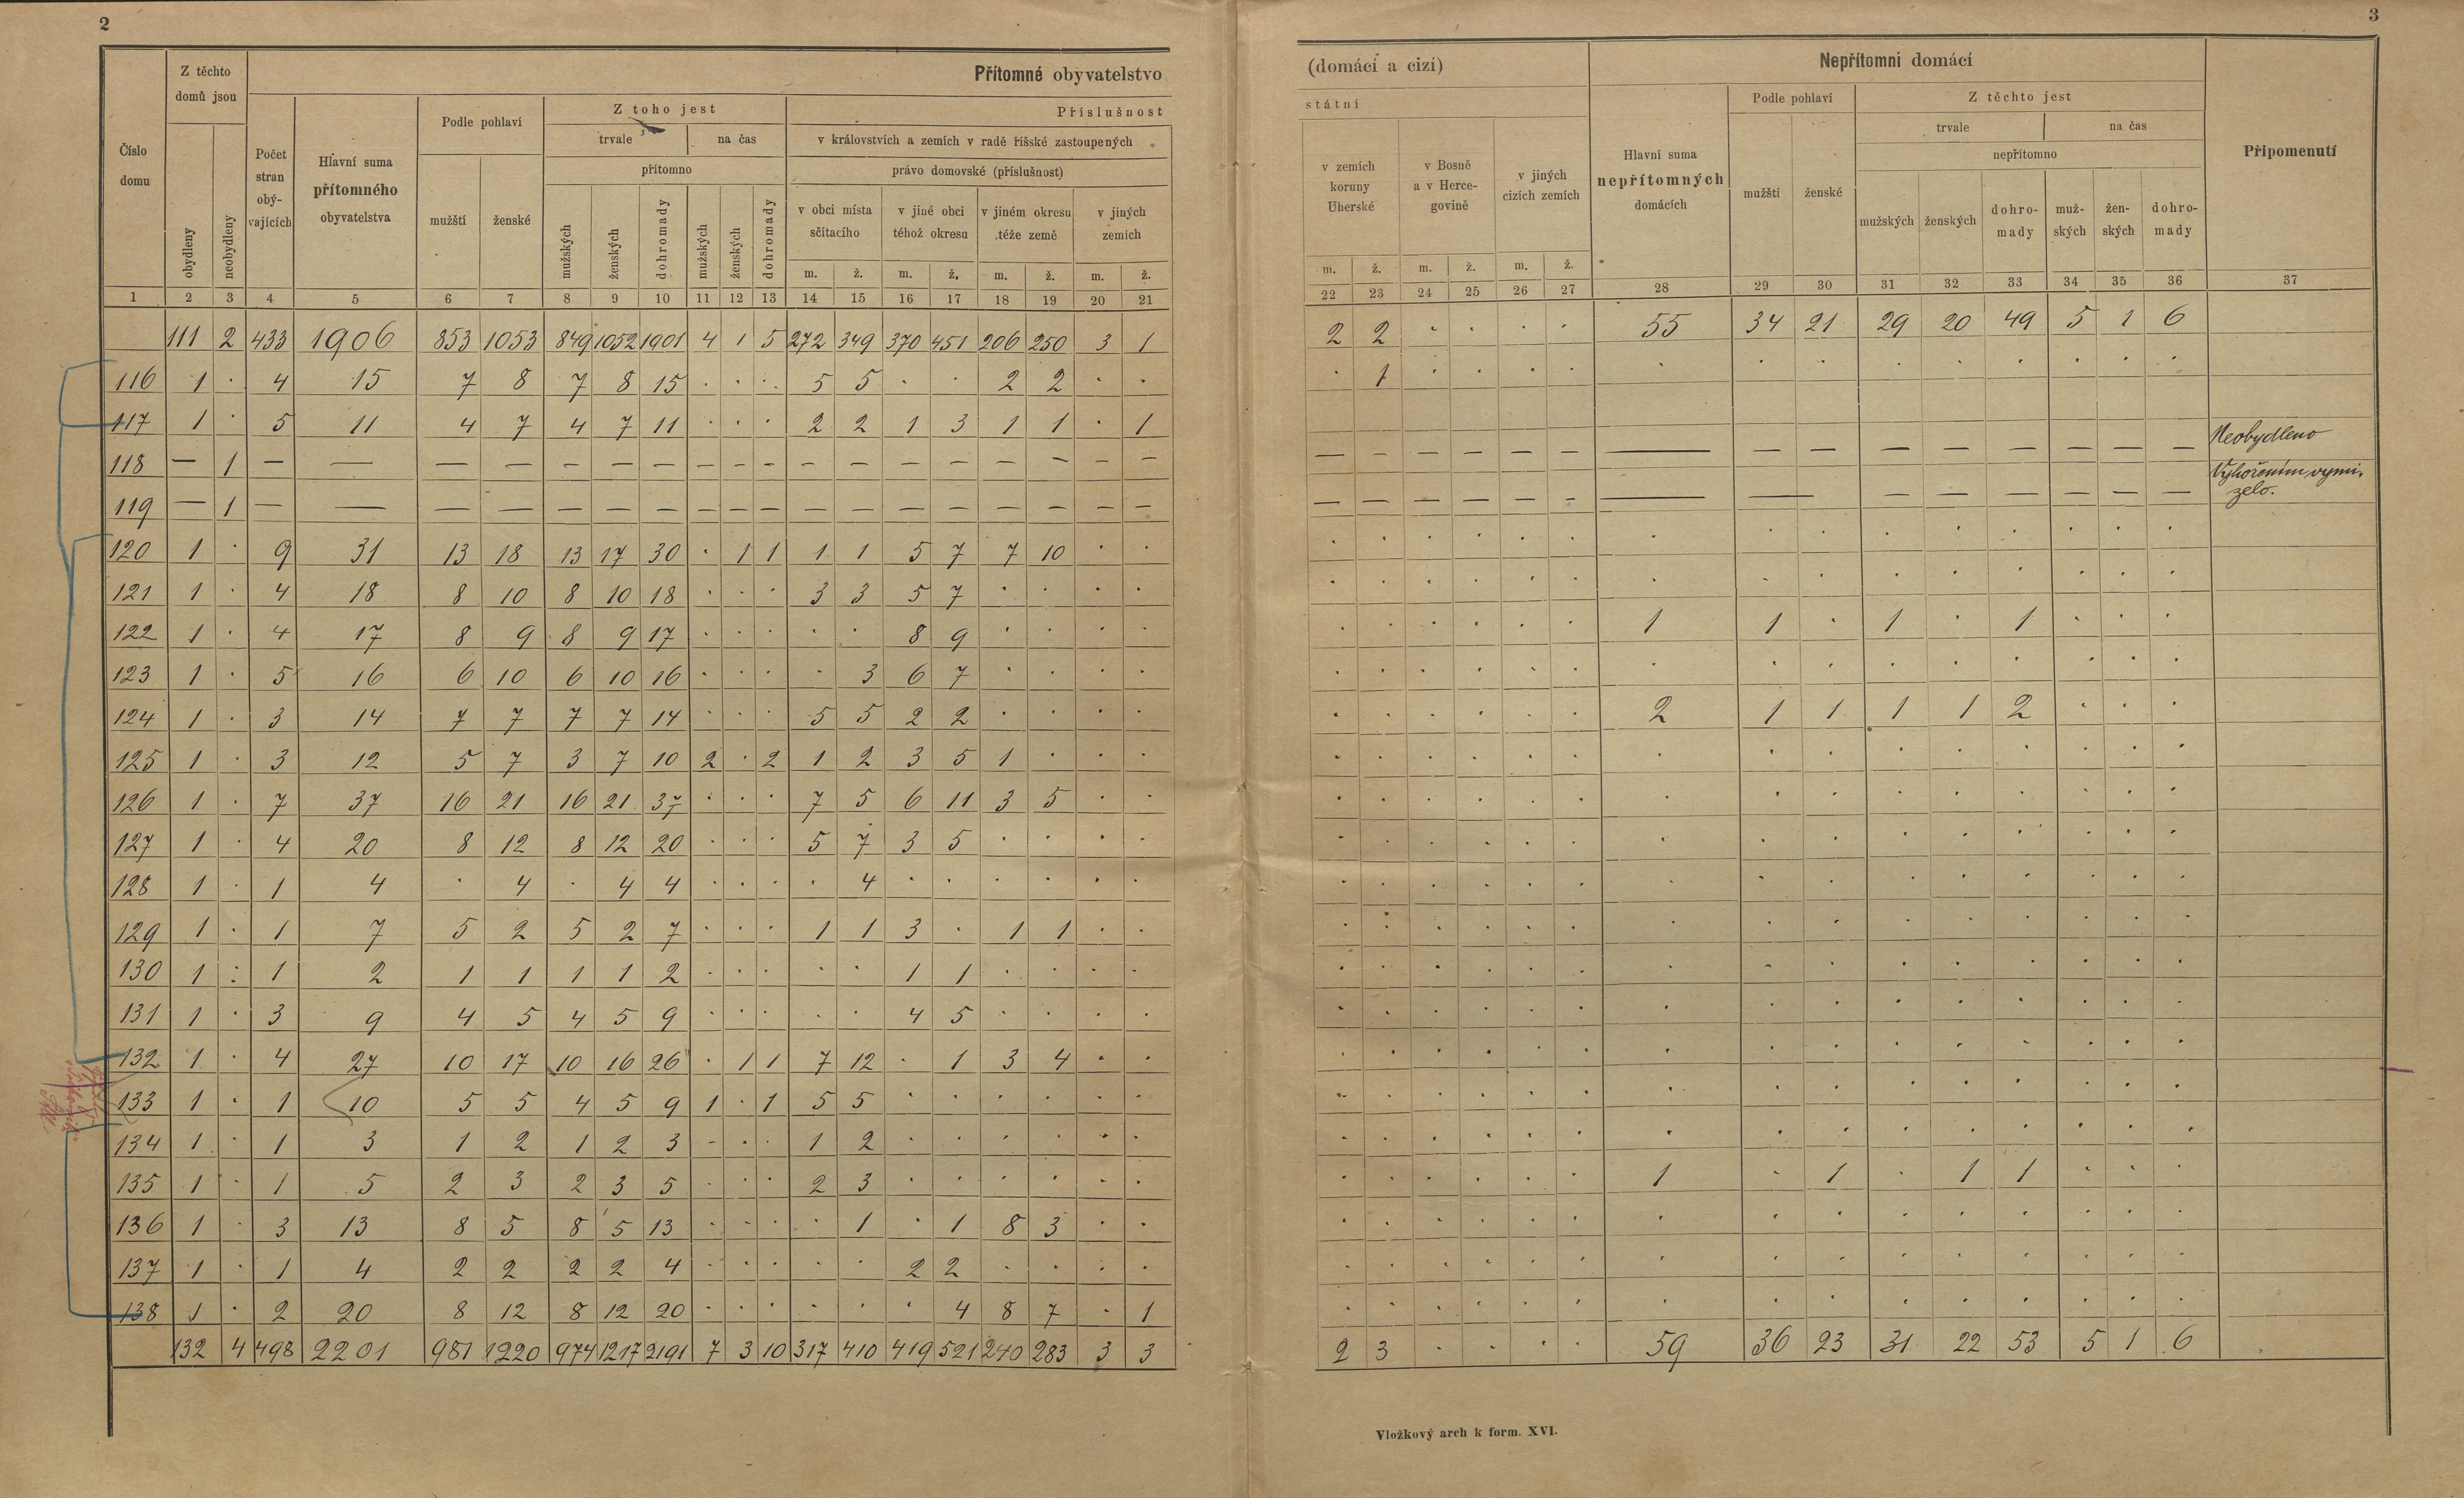 2
3
Přítomné obyvatelstvo
(domácí a cizí)
Nepřítomní domácí
Číslo domu
Z těchto domů jsou
obydleny
neobydleny
Počet stran obývajících
Hlavní suma přítomného obyvatelstva
Podle pohlaví
mužští
ženské
Z toho jest
trvale
na čas
přítomno
mužských
ženských
dohromady
mužských
ženských
dohromady
Příslušnost
v královstvích a zemích v radě říšské zastoupených
právo domovské (příslušnost)
v obci místa sčítacího
v jiné obci téhož okresu
v jiném okresu téže země
v jiných zemích
m. ž. m. ž. m. ž. m. ž.
státní
v zemích koruny Uherské
v Bosně a v Hercegovině
v jiných cizích zemích
m. ž. m. ž. m. ž.
Hlavní suma nepřítomných domácích
Podle pohlaví
mužští
ženské
Z těchto jest
trvale
na čas
nepřítomno
mužských
ženských
dohromady
mužských
ženských
dohromady
Připomenutí
1 2 3 4 5 6 7 8 9 10 11 12 13 14 15 16 17 18 19 20 21 22 23 24 25 26 27 28 29 30 31 32 33 34 35 36 37
111 2 433 1906 853 1053 849 1052 1901 4 1 5 272 349 370 451 206 250 3 1 2 2 · · · · 55 34 21 29 20 49 5 1 6
116 1 · 4 15 7 8 7 8 15 · · · 5 5 · · 2 2 · · · 1 · · · · · · · · · · · · ·
117 1 · 5 11 4 7 4 7 11 · · · 2 2 1 3 1 1 · 1
118 — 1 — — — — — — — — — — — — — — — — — — — — — — — — — — — — — — — — — Neobydleno
119 — 1 — — — — — — — — — — — — — — — — — — — — — — — — — — — — — — — — Vyhořením vymizelo.
120 1 · 9 31 13 18 13 17 30 · 1 1 1 1 5 7 7 10 · · · · · · · · · · · · · · · · ·
121 1 · 4 18 8 10 8 10 18 · · · 3 3 5 7 · · · · · · · · · · · · · · · · · · ·
122 1 · 4 17 8 9 8 9 17 · · · · · 8 9 · · · · · · · · · · 1 1 · 1 · 1 · · ·
123 1 · 5 16 6 10 6 10 16 · · · · 3 6 7 · · · · · · · · · · · · · · · · · · ·
124 1 · 3 14 7 7 7 7 14 · · · 5 5 2 2 · · · · · · · · · · 2 1 1 1 1 2 · · ·
125 1 · 3 12 5 7 3 7 10 2 · 2 1 2 3 5 1 · · · · · · · · · · · · · · · · · ·
126 1 · 7 37 16 21 16 21 37 · · · 7 5 6 11 3 5 · · · · · · · · · · · · · · · · ·
127 1 · 4 20 8 12 8 12 20 · · · 5 7 3 5 · · · · · · · · · · · · · · · · · · ·
128 1 · 1 4 · 4 · 4 4 · · · · 4 · · · · · · · · · · · · · · · · · · · · ·
129 1 · 1 7 5 2 5 2 7 · · · 1 1 3 · 1 1 · · · · · · · · · · · · · · · · ·
130 1 · 1 2 1 1 1 1 2 · · · · · 1 1 · · · · · · · · · · · · · · · · · · ·
131 1 · 3 9 4 5 4 5 9 · · · · · 4 5 · · · · · · · · · · · · · · · · · · ·
132 1 · 4 27 10 17 10 16 26 · 1 1 7 12 · 1 3 4 · · · · · · · · · · · · · · · · ·
133 1 · 1 10 5 5 4 5 9 1 · 1 5 5 · · · · · · · · · · · · · · · · · · · · ·
134 1 · 1 3 1 2 1 2 3 · · · 1 2 · · · · · · · · · · · · · · · · · · · · ·
135 1 · 1 5 2 3 2 3 5 · · · 2 3 · · · · · · · · · · · · 1 · 1 · 1 1 · · ·
136 1 · 3 13 8 5 8 5 13 · · · · 1 · 1 8 3 · · · · · · · · · · · · · · · · ·
137 1 · 1 4 2 2 2 2 4 · · · · · 2 2 · · · · · · · · · · · · · · · · · · ·
138 1 · 2 20 8 12 8 12 20 · · · · · · 4 8 7 · 1 · · · · · · · · · · · · · · ·
132 4 498 2201 981 1220 974 1217 2191 7 3 10 317 410 419 521 240 283 3 3 2 3 · · · · 59 36 23 31 22 53 5 1 6
Vložkový arch k form. XVI.